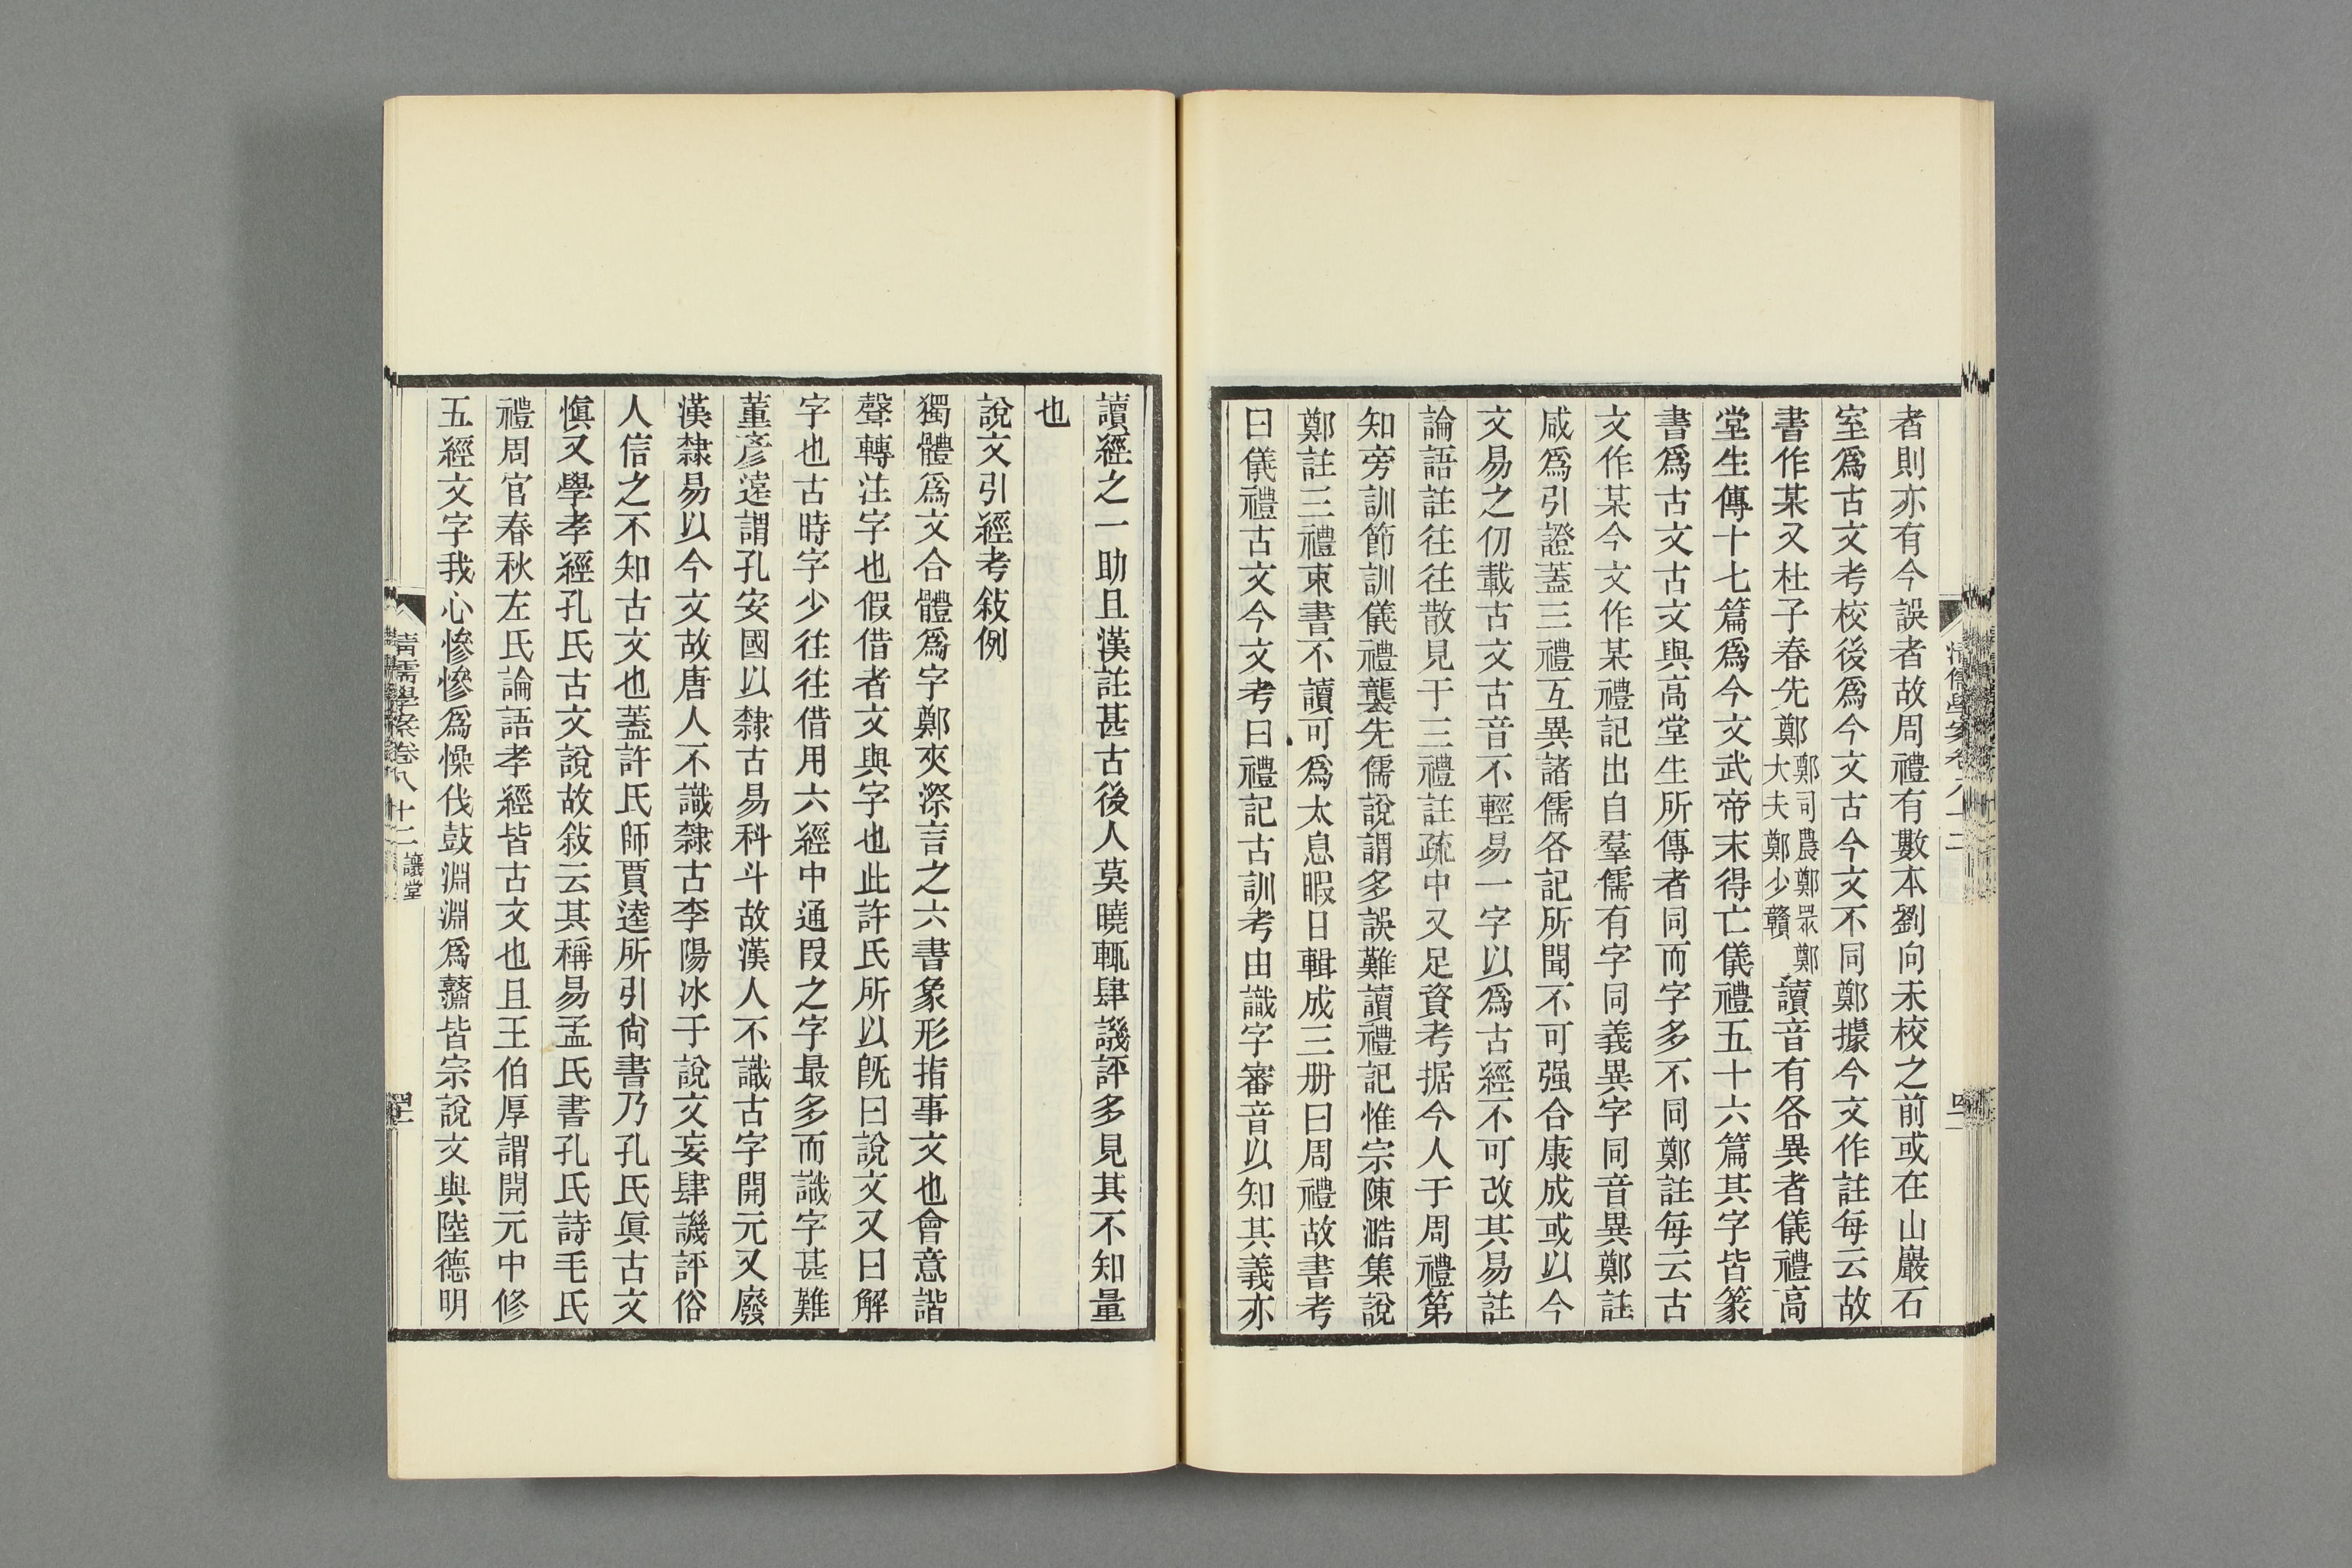 者則亦有今誤者故周禮有數本劉向未校之前或在山巖石
室爲古文考校後爲今文古今文不同鄭據今文作註每云故
書作某又杜子春先鄭鄭司農鄭眾鄭大夫鄭少贛讀音有各異者儀禮高
堂生傳十七篇爲今文武帝末得亡儀禮五十六篇其字皆篆
書爲古文古文與高堂生所傳者同而字多不同鄭註每云古
文作某今文作某禮記出自羣儒有字同義異字同音異鄭註
咸爲引證蓋三禮互異諸儒各記所聞不可强合康成或以今
文易之仞載古文古音不輕易一字以爲古經不可改其易註
論語註往往散見于三禮註疏中又足資考据今人于周禮第
知旁訓節訓儀禮襲先儒說謂多誤難讀禮記惟宗陳澔集說
鄭註三禮束書不讀可爲太息暇日輯成三册曰周禮故書考
曰儀禮古文今文考曰禮記古訓考由識字審音以知其義亦
清儒學案卷八十二
讀經之一助且漢註甚古後人莫曉輒肆譏評多見其不知量
也
說文引經考敍例
獨體爲文合體爲字鄭夾漈言之六書象形指事文也會意諧
聲轉注字也假借者文與字也此許氏所以旣曰說文又曰解
字也古時字少往往借用六經中通叚之字最多而識字甚難
董彥遠謂孔安國以隸古易科斗故漢人不識古字開元又廢
漢隸易以今文故唐人不識隸古李陽冰于說文妄肆譏評俗
人信之不知古文也蓋許氏師賈逵所引尙書乃孔氏眞古文
愼又學孝經孔氏古文說故敍云其稱易孟氏書孔氏詩毛氏
禮周官春秋左氏論語孝經皆古文也且王伯厚謂開元中修
五經文字我心慘慘爲懆伐鼓淵淵爲鼘皆宗說文與陸德明
清儒學案卷八十二
讓堂